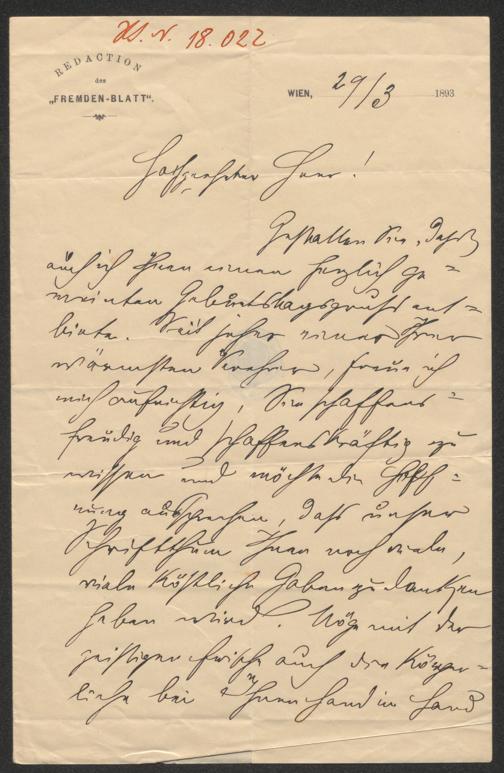 Hs. N. 18.022
REDACTION
des
„FREMDEN-BLATT“.
WIEN, 29/3 1893
Hochgeehrter Herr!
Gestatten Sie, daß
auch ich Ihnen einen herzlich ge-
meinten Geburtstagsgruß ent-
biete. Seit jeher einer Ihrer
wärmsten Verehrer, freue ich
mich aufrichtig, Sie schaffens-
freudig und schaffenskräftig zu
wissen und möchte die Hoff-
nung aussprechen, daß unser
Schriftthum Ihnen noch viele,
viele köstliche Gaben zu danken
haben wird. Möge mit der
geistigen Frische auch die körper-
liche bei Ihnen Hand in Hand